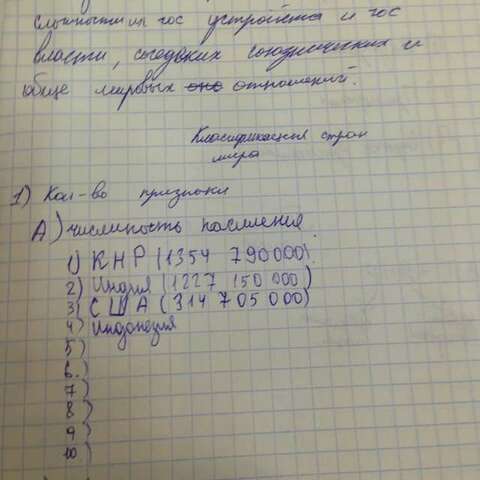 гос устройства и гос
власти, соседских союзнических и
обще мировых отношений.
Классификация стран
мира
1) Кол-во признаки
А) числиность насиления
1) КНР (1354 790000)
2) Индия (1227 150 000)
3) США (314 705 000)
4) Индонезия
5)
6.)
7)
8)
9)
10)